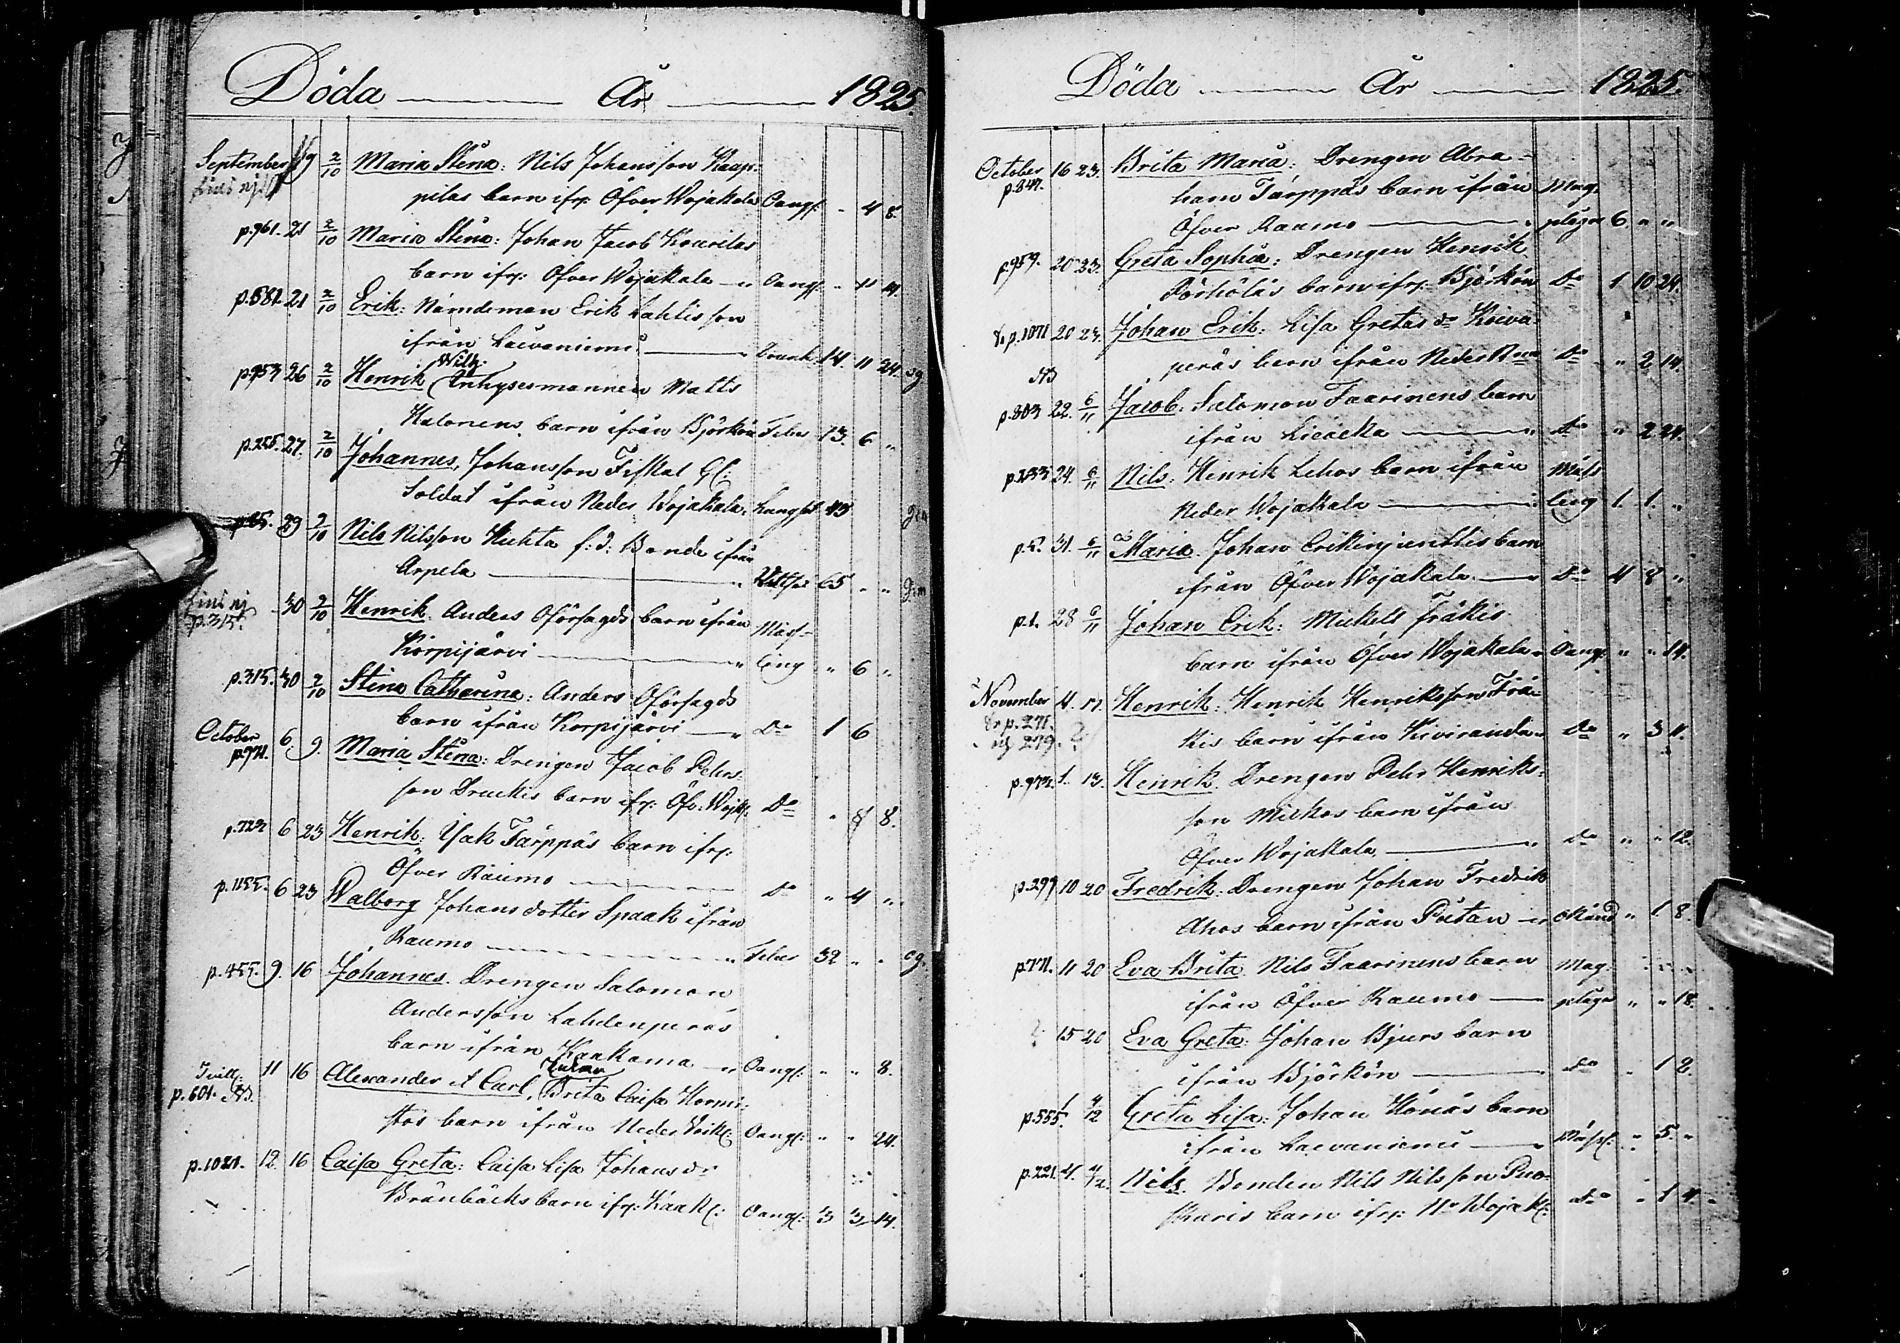 Döda År 1825.
September 19 2/10 Maria Stina: Nils Johansson Kaup-
pilas barn ifr: Öfver Wojakala Oangf: - 4 8.
p.961. 21 2/10 Maria Stina: Johan Jacob Kouritas
barn ifr: Öfver Wojakala - Oangf: - 11 14.
p.581 21 2/10 Erik: Nämndeman Erik Lahtis son
ifrån Laivaniemi 14. 11 24. og
p.953 26 2/10 Henrik Wilh: Inhysesmannen Matts
Halonens barn ifrån Björkön Feber 13. 6 "
p.255. 27. 2/10 Johannes, Johansson Fiskal Gl:
Soldat ifrån Neder Wojakala. Lungsot 43
p.85. 29 2/10 Nils Nilsson Huhta f: d: Bonde ifrån
Arpela 65 " "
finns ej p.315. 30 2/10 Henrik. Anders Oförsagds barn ifrån Mäss-
Korpijärvi ling " 6 "
p.315. 30 2/10 Stina Catharina: Anders Oförsagds
barn ifrån Korpijärvi Do 1 6
October p.971. 6. 9. Maria Stina: Drengen Jacob Peders-
son Druckis barn ifr: Öfv: Wojk: Do " 8 8.
p.723 6 23 Henrik: Isak Tarppas barn ifr:
Öfver Raumo Do " 4 "
p.1155. 6 23 Walborg Johansdotter Spaak ifrån
Raumo Feber 32 " . og.
p.455. 9. 16 Johannes. Drengen Salomon
Andersson Lahdenperäs
barn ifrån Kaakama Oangf: " " 8.
Tvill: p.601. 11 16 Alexander et Carl, Brita Caisa Hormi-
stos barn ifrån Neder Oangf: " " 24.
p.1021. 12. 16 Caisa Greta: Caisa Lisa Johans dr
Brännbäcks barn ifr: Kaak: Oangf: 3 3 14.
Döda År 1825.
October p.841. 16 23. Brita Maria: Drengen Abra-
ham Tarppas barn ifrån Mag-
Öfver Raumo plågor 6. " "
p.959. 20 23. Greta Sophia: Drengen Henrik
Pörhöläs barn ifr: Björkön Do 1 10 24.
p.1071 20 23. Johan Erik: Lisa Gretas dr Koiva-
peräs barn ifrån Neder Do " 2 14.
p.803 22. 6/11 Jacob: Salomon Taarinens barn
ifrån Liedeka Do " 2 24.
p.233 24. 6/11 Nils: Henrik Lehos barn ifrån Mäss
Neder Wojakala ling 1. 1. "
p.5. 31. 6/11 Maria. Johan barn
ifrån Öfver Wojakala Do 4 8 "
p.1. 28 6/11 Johan Erik: Mickels Fräkis
barn ifrån Öfver Wojakala Oangf: " " 14.
November 4. 17. Henrik: Henrik Henriksson Frä-
p.271. och 279. ? kis barn ifrån Kiviranda Do " 3 4.
p.973. 1. 13. Henrik. Drengen Peter Henriks-
son Mickos barn ifrån
Öfver Wojakala Do " " 12.
p.299 10 20 Fredrik: Drengen Johan Fredrik
Ahos barn ifrån Putan okänd " 1 8.
p.771. 11 20 Eva Brita. Nils Taarinens barn Mag-
ifrån Öfver Raumo plågor " " 18.
? 15 20 Eva Greta: Johan Bjurs barn
ifrån Björkön Do " 1 2.
p.555. 1 4/12 Greta Lisa: Johan Könös barn
ifrån Laivaniemi Mässl: " 5. "
p.221. 4. 4/12. Nils. Bonden Nils Nilsson Puo-
skaris barn ifr: Nr Wojak: Do " 1 4